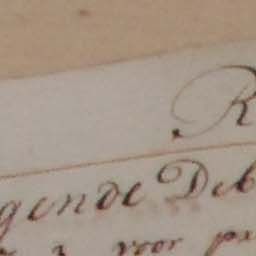 R
gende Deb
voor